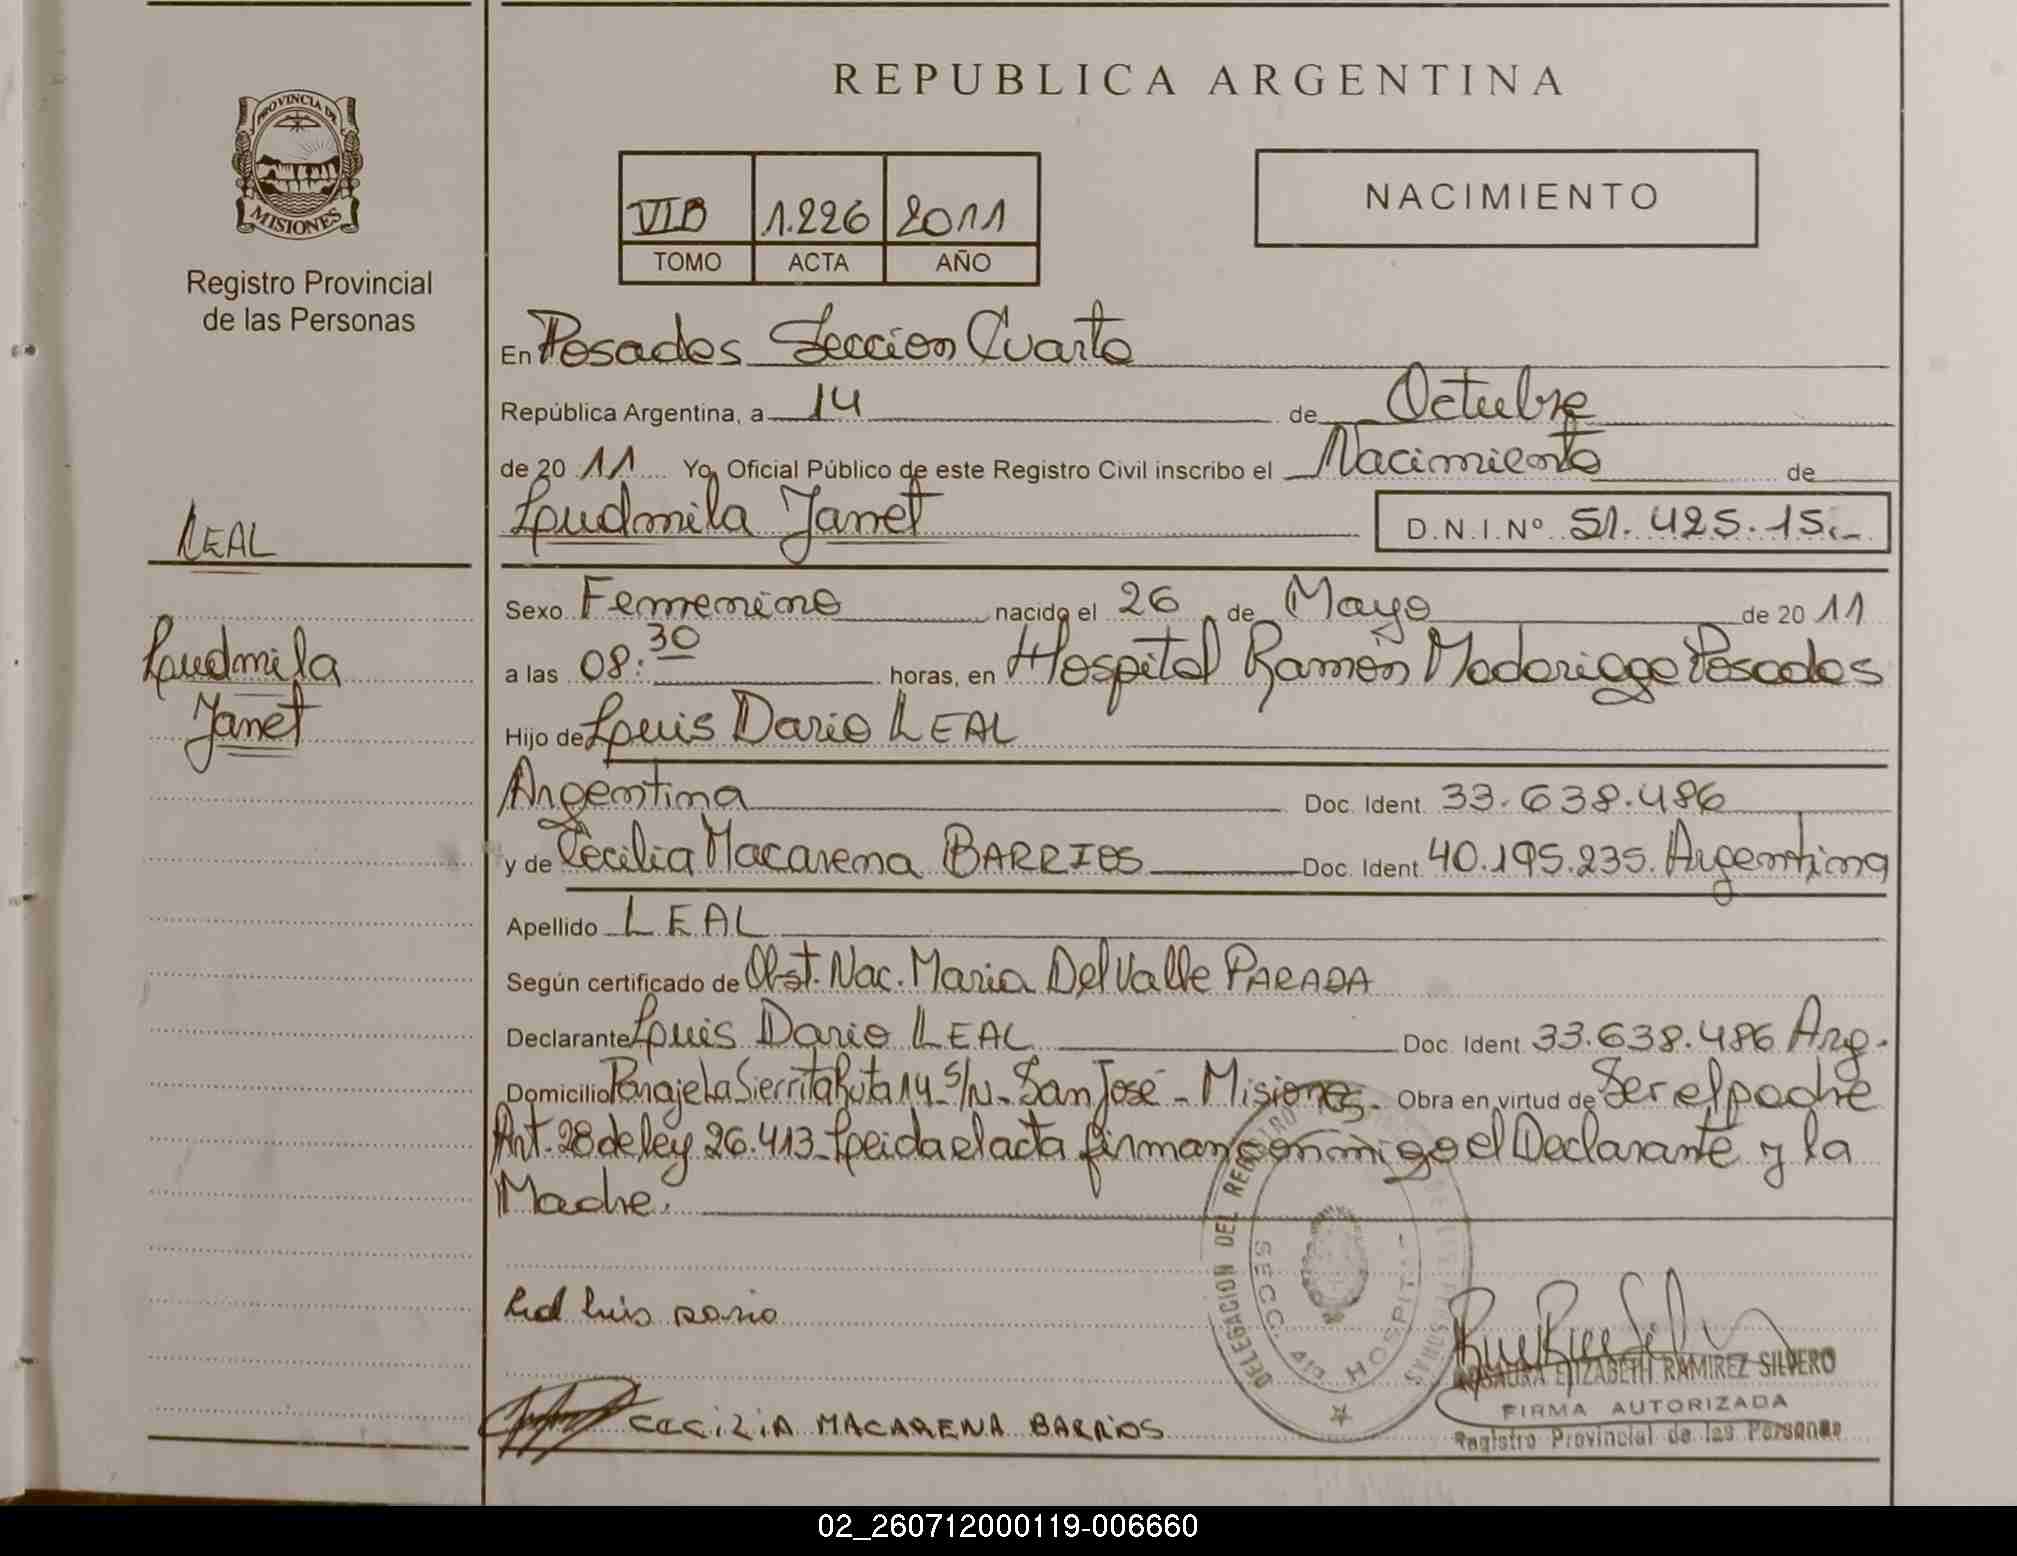 REPUBLICA ARGENTINA
PROVINCIA DE
MISIONES
Registro Provincial
de las Personas
VIB 1.226 2011
TOMO ACTA AÑO
NACIMIENTO
En Posadas Seccion Cuarta
República Argentina, a 14 de Octubre
de 20 11 Yo, Oficial Público de este Registro Civil inscribo el Nacimiento de
Ludmila Janet D.N.I.Nº 51.425.15.-
LEAL
Ludmila
Janet
Sexo Femenino nacido el 26 de Mayo de 20 11
a las 08:30 horas, en Hospital Ramón Madariaga Posadas
Hijo de Luis Dario LEAL
Argentina Doc. Ident. 33.638.486
y de Cecilia Macarena BARRIOS Doc. Ident. 40.195.235. Argentina
Apellido LEAL
Según certificado de Obst. Nac. Maria Del Valle PARADA
Declarante Luis Dario LEAL Doc. Ident. 33.638.486 Arg.
Domicilio Paraje La Sierrita Ruta 14 S/N - San José - Misiones - Obra en virtud de Ser el padre
Art. 28 de ley 26.413 - Leida el acta firman conmigo el Declarante y la
Madre.
Leal Luis Dario
CECILIA MACARENA BARRIOS
DELEGACION DEL
SECC. 4ta HOSPITAL
ROSAURA ELIZABETH RAMIREZ SILVERO
FIRMA AUTORIZADA
Registro Provincial de las Personas
02_260712000119-006660